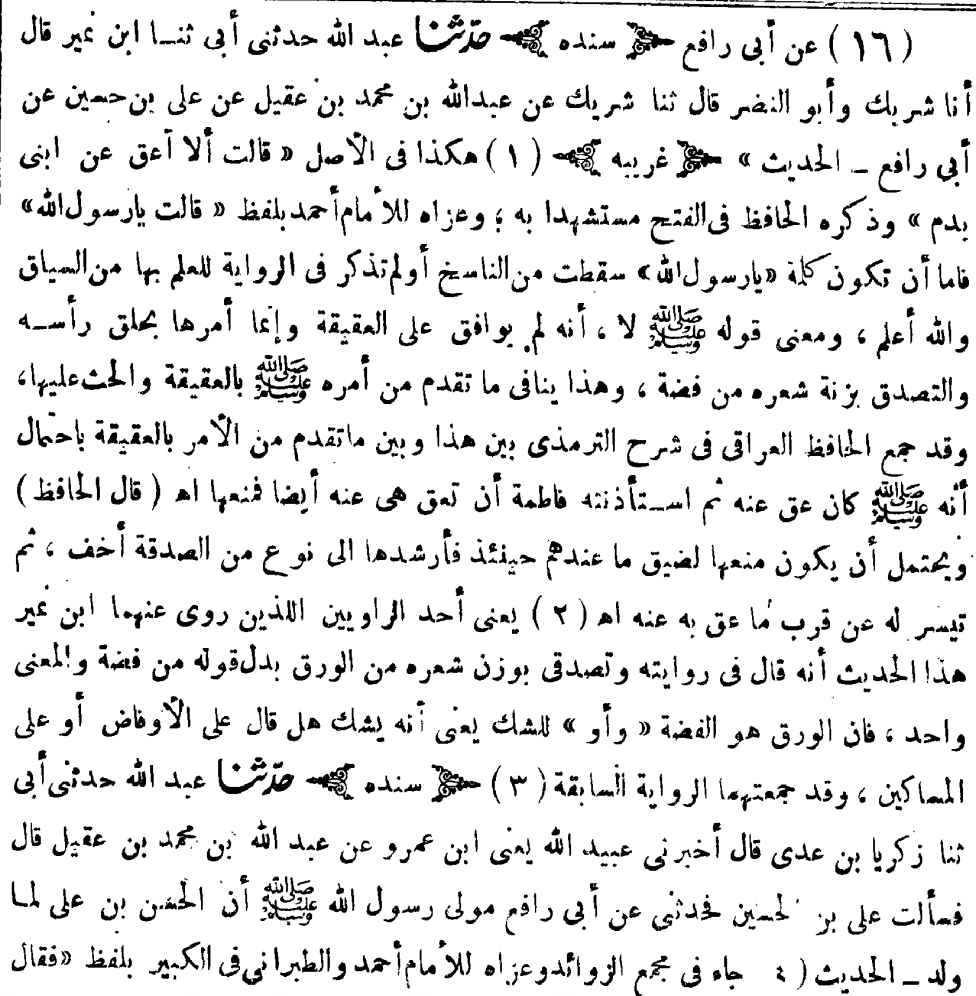 ( ١٦ ) عن أبى رافع ﴿ سنده ﴾ حدّثنا عبد الله حدثنى أبى ثنــا ابن نمير قال
أنا شريك وأبو النضر قال ثنا شريك عن عبدالله بن محمد بن عقيل عن على بن حسين عن
أبي رافع ـ الحديث » ﴿ غريبه ﴾ ( ١ ) هكذا فى الأصل « قالت ألا أعق عن ابنى
بدم » وذكره الحافظ فى الفتح مستشهدا به ؛ وعزاه للأمام أحمد بلفظ « قالت يارسول الله»
فاما أن تكون كلمة «يارسول الله» سقطت من الناسخ أو لم تذكر فى الرواية للعلم بها من السياق
والله أعلم ، ومعنى قوله ﷺ لا ، أنه لم يوافق على العقيقة وإنما أمرها بحلق رأســه
والتصدق بزنة شعره من فضة ، وهذا ينافى ما تقدم من أمره ﷺ بالعقيقة والحث عليها،
وقد جمع الحافظ العراقى فى شرح الترمذى بين هذا وبين ماتقدم من الأمر بالعقيقة باحتمال
أنه ﷺ كان عق عنه ثم اســتأذنته فاطمة أن تعق هى عنه أيضا فمنعها اه ( قال الحافظ )
ويحتمل أن يكون منعها لضيق ما عندهم حينئذ فأرشدها الى نوع من الصدقة أخف ، ثم
تيسر له عن قرب ما عق به عنه اه ( ٢ ) يعنى أحد الراويين اللذين روى عنهما ابن نمير
هذا الحديث أنه قال فى روايته وتصدقى بوزن شعره من الورق بدل قوله من فضة والمعنى
واحد ، فان الورق هو الفضة « وأو » للشك يعنى أنه يشك هل قال على الأوفاض أو على
المساكين ، وقد جمعتهما الرواية السابقة ( ٣ ) ﴿ سنده ﴾ حدّثنا عبد الله حدثنى أبى
ثنا زكريا بن عدى قال أخبرنى عبيد الله يعنى ابن عمرو عن عبد الله بن محمد بن عقيل قال
فسألت على بن الحسين فحدثنى عن أبى رافع مولى رسول الله ﷺ أن الحسن بن على لمـا
ولد ـ الحديث ( ٤ جاء فى مجمع الزوائد وعزاه للأمام أحمد والطبرانى فى الكبير بلفظ «فقال